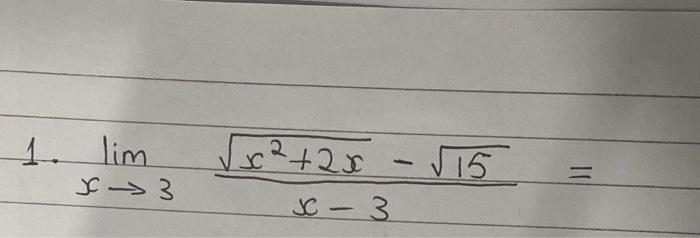 1. lim x→3 (√(x²+2x) - √15)/(x - 3) =